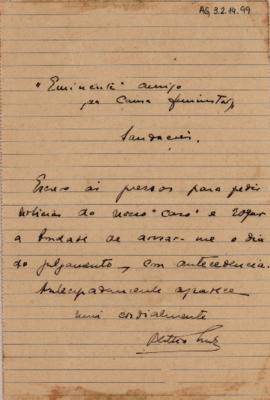 AG, 3.2.14.99
"Eminente" amigo
da causa feminista,
Saudações.
Escrevo às pressas para pedir
noticias do nosso "caso" e rogar
a bondade de avisar-me o dia
do julgamento, com antecedencia.
Antecipadamente agradece
mui cordialmente